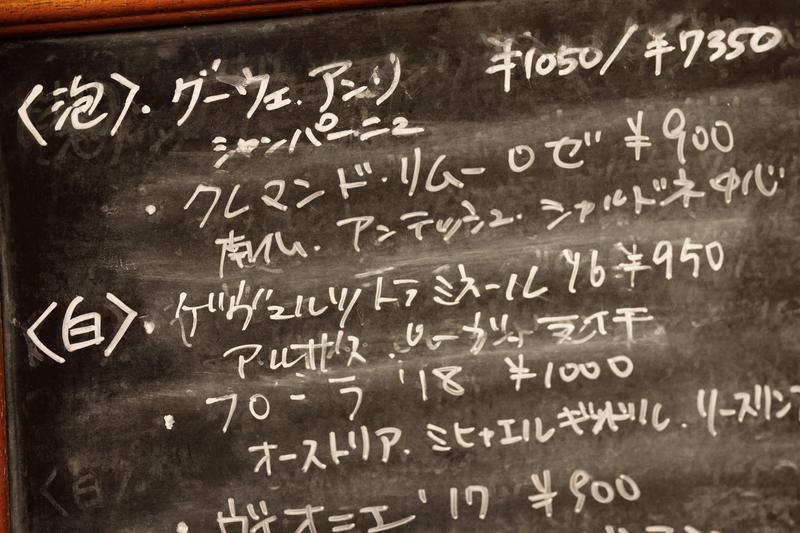 〈泡〉・グーウェ.アンリ ¥1050/¥7350
シャンパーニュ
・クレマンド・リムーロゼ ¥900
南仏.アンテッシュ.シャルドネ中心
〈白〉・ゲヴュルツトラミネール '16 ¥950
アルザス. ライチ
・フローラ '18 ¥1000
オーストリア.ミヒャエル .リースリン
〈白〉
・ヴィオニエ '17 ¥900